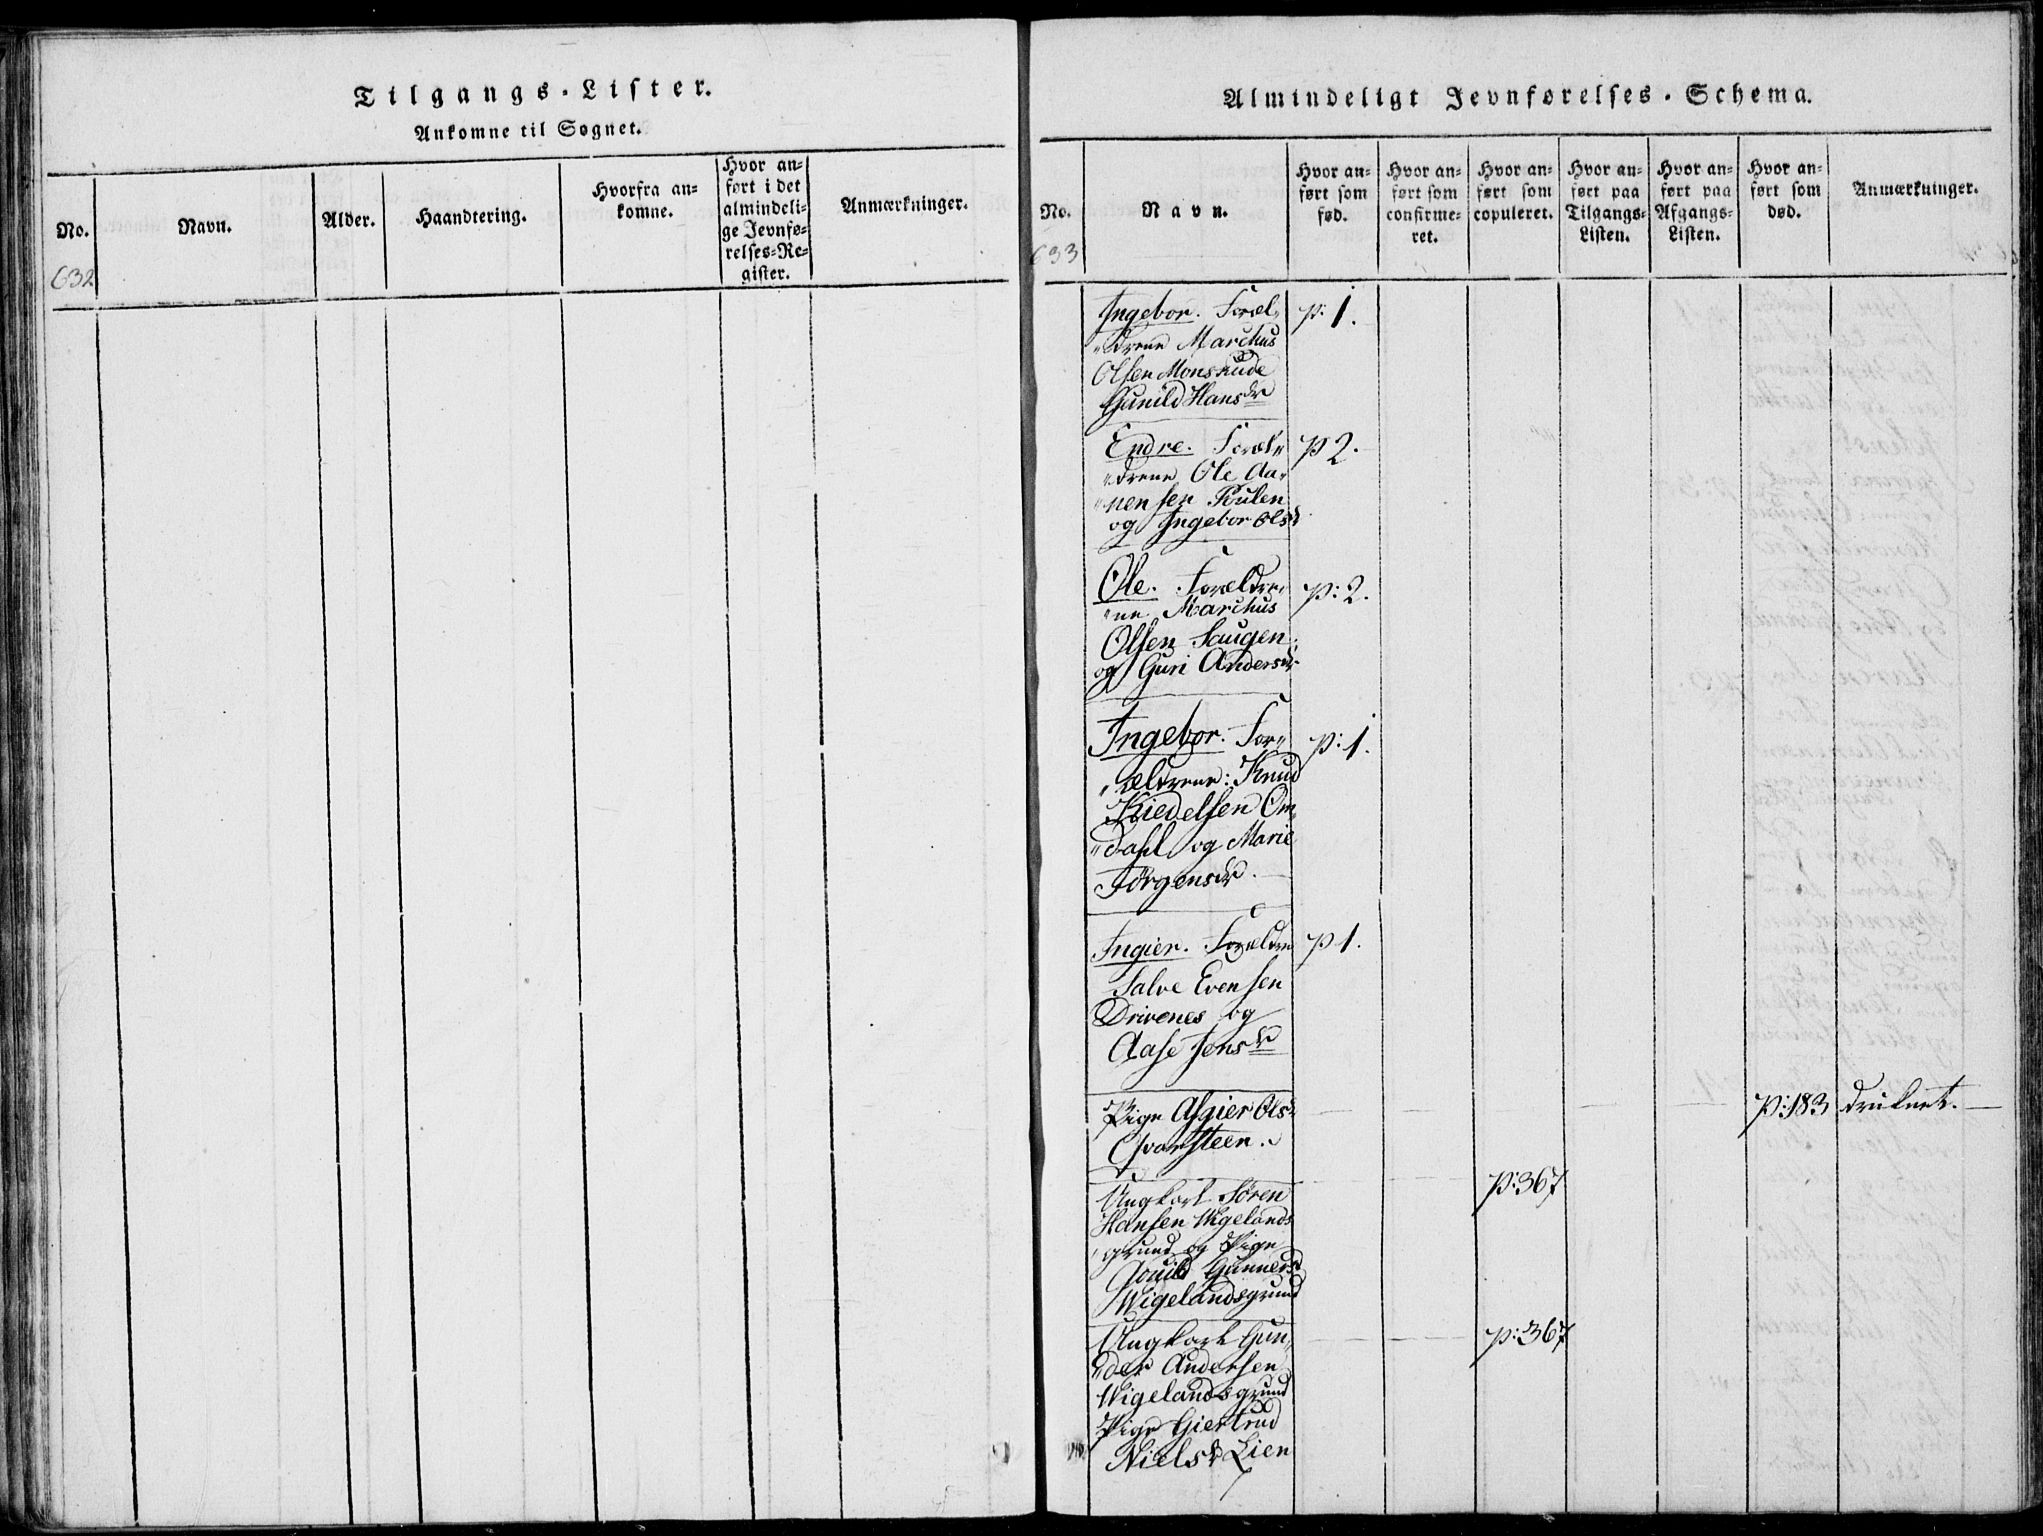 Tilgangs-Lister.
Ankomne til Sognet.
No.
Navn.
Alder.
Haandtering.
Hvorfra an-
komne.
Hvor an-
ført i det
almindeli-
ge Jevnfø-
relses-Re-
gister.
Anmærkninger.
632
Almindeligt Jevnførelses-Schema.
No.
Navn.
Hvor an-
ført som
fød.
Hvor an-
ført som
confirme-
ret.
Hvor an-
ført som
copuleret.
Hvor an-
ført paa
Tilgangs-
Listen.
Hvor an-
ført paa
Afgangs-
Listen.
Hvor an-
ført som
død.
Anmærkninger.
633
Ingebor. Foræl- p: 1.
drene Marchus
Olsen Monskude
Gunild Hansdr
Endre. Foræl- p 2.
drene Ole Aa-
nensen Foulen
og Ingebor Olsd
Ole. Forældre- p: 2.
ne Marchus
Olsen Saugen
og Guri Andersdr
Ingebor. For- p: 1.
ældrene: Knud
Kiedelsen Om-
dahl og Marie
Jörgensdr.
Ingier. Forældre p 1.
Salve Evensen
Drivenes og
Aase Jensdr
Pige Asgier Ols- p: 183 druknet.
Qvarsteen.
Ungkarl Sören p: 367
Hansen Wigelands
grund og Pige
Gunners
Wigelandsgrund
Ungkarl Gun- p: 367
der Andersen
Wigelandsgrund
Pige Giertrud
Nielsd Lien